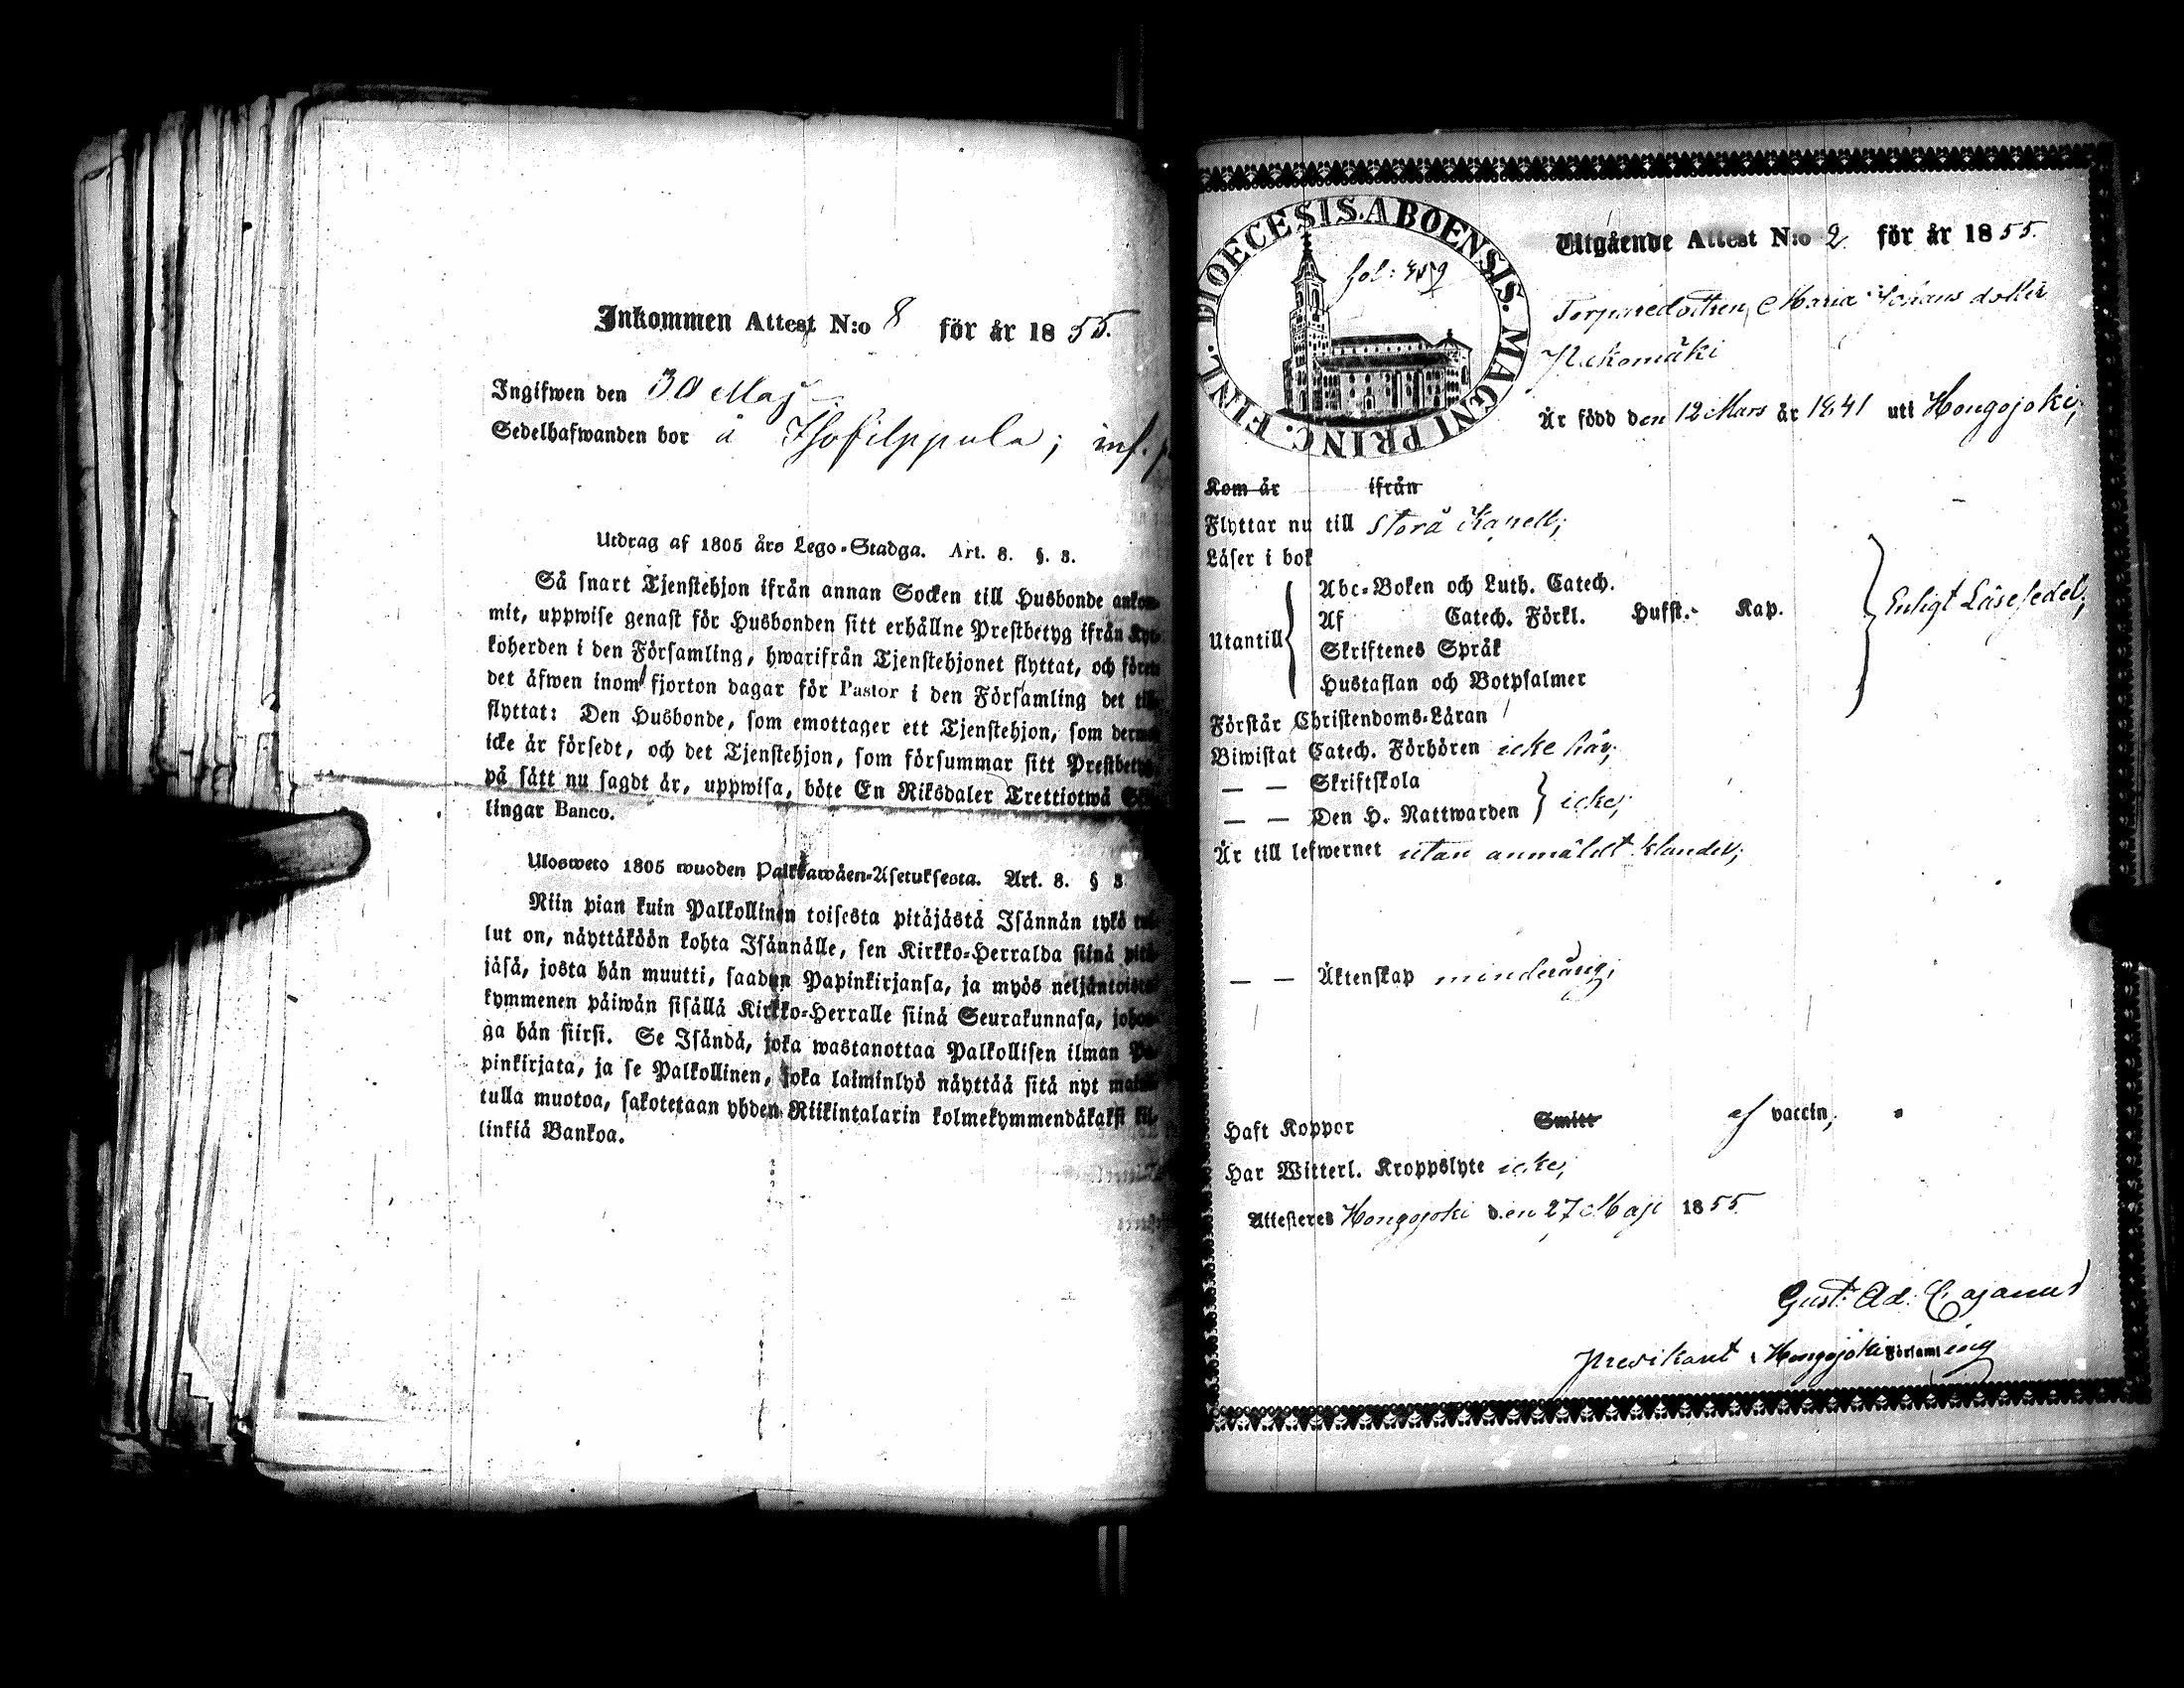 Inkommen Attest N:o 8 för år 1855.
Ingifwen den 30 Maj
Sedelhafwanden bor å Isofilppula; inf.
Utdrag af 1805 års Lego-Stadga. Art. 8. §. 8.
Så snart Tjenstehjon ifrån annan Socken till Husbonde ankom-
mit, uppwise genast för Husbonden sitt erhållne Prestbetyg ifrån Kyr-
koherden i den Församling, hwarifrån Tjenstehjonet flyttat, och förete
det äfwen inom fjorton dagar för Pastor i den Församling det till-
flyttat: Den Husbonde, som emottager ett Tjenstehjon, som dermed
icke är försedt, och det Tjenstehjon, som försummar sitt Prestbetyg,
på sätt nu sagdt är, uppwisa, böte En Riksdaler Trettiotwå Skil-
lingar Banco.
Ulosweto 1805 wuoden Palkkawäen-Asetuksesta. Art. 8. § 8
Niin pian kuin Palkollinen toisesta pitäjästä Isännän tykö tul-
lut on, näyttäköön kohta Isännälle, sen Kirkko-Herralda siinä pitä-
jäsä, josta hän muutti, saadun Papinkirjansa, ja myös neljäntoista
kymmenen päiwän sisällä Kirkko-Herralle siinä Seurakunnasa, johon-
ga hän siirsi. Se Isändä, joka wastanottaa Palkollisen ilman Pa-
pinkirjata, ja se Palkollinen, joka laiminlyö näyttää sitä nyt mainit-
tulla muotoa, sakotetaan yhden Riikintalarin kolmekymmendäkaksi kil-
linkiä Bankoa.
DIOECESIS. ABOENSIS. MAGNI PRINC. FINL.
fol: 459
Utgående Attest N:o 2 för år 1855.
Torparedottren Maria Johansdotter
Är född den 12 Mars år 1841 uti Hongojoki;
Kom år ifrån
Flyttar nu till Storå Kapell;
Läser i bok
Utantill
Abc-Boken och Luth. Catech.
Af Catech. Förkl. Hufst.- Kap.
Skriftenes Språk
Hustaflan och Botpsalmer
Enligt Läsesedel;
Förstår Christendoms-Läran
Biwistat Catech. Förhören icke här;
— — Skriftskola
— — Den H. Nattwarden icke;
Är till lefwernet utan anmäldt klander;
— — Äktenskap minderårig;
Haft Koppor Smitt af vaccin;
Har Witterl. Kroppslyte icke;
Attesteres Hongojoki den 27 Maji 1855.
Gust: Ad: Cajanus
Predikant i Hongojoki Församling